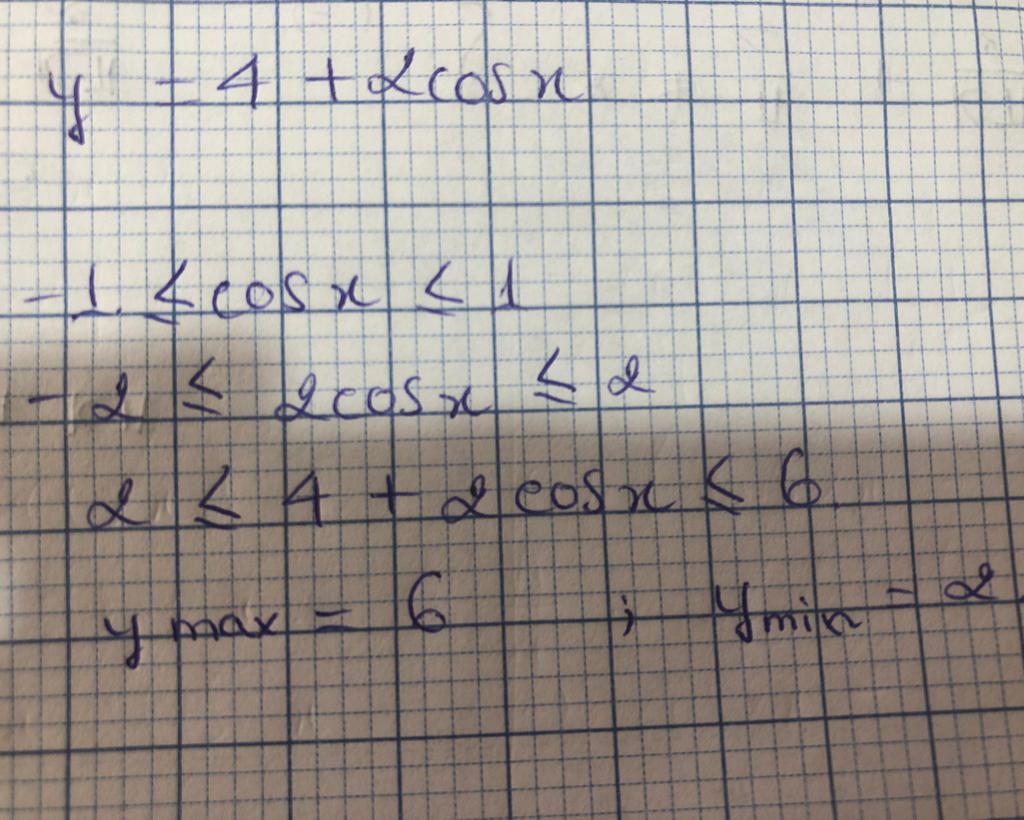 y = 4 + 2cosx
-1 ≤ cosx ≤ 1
-2 ≤ 2cosx ≤ 2
2 ≤ 4 + 2cosx ≤ 6
y max = 6 ; y min = 2